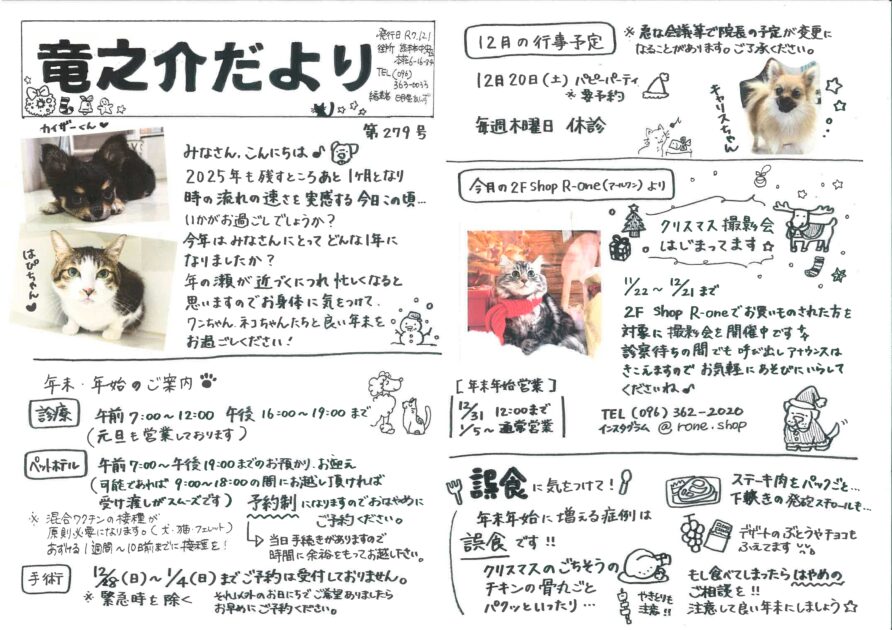 竜之介だより
発行日 R7.12.1
TEL (096)
363-0033
第279号
カイザーくん♥
はぴちゃん♥
みなさん、こんにちは♪
2025年も残すところあと1ヶ月となり
時の流れの速さを実感する今日この頃…
いかがお過ごしでしょうか?
今年はみなさんにとってどんな1年に
なりましたか?
年の瀬が近づくにつれ忙しくなると
思いますのでお身体に気をつけて、
ワンちゃん、ネコちゃんたちと良い年末を
お過ごしください!
年末・年始のご案内
診療 午前7:00〜12:00 午後16:00〜19:00まで
(元旦も営業しております)
ペットホテル 午前7:00〜午後19:00までのお預かり、お迎え
(可能であれば 9:00〜18:00の間にお越し頂ければ
受け渡しがスムーズです) 予約制になりますのでおはやめに
ご予約ください。
※ 混合ワクチンの接種が
原則必要になります。(犬・猫・フェレット)
あずける1週間〜10日前までに接種を!
当日手続きがありますので
時間に余裕をもってお越し下さい。
手術 12/28(日)〜1/4(日)までご予約は受付しておりません。
※ 緊急時を除く
それ以外のお日にちでご希望ありましたら
お早めにご予約ください。
12月の行事予定
※ 急な会議等で院長の予定が変更に
なることがあります。ご了承ください。
12月20日(土) パピーパーティ
※ 要予約
毎週木曜日 休診
キャリスちゃん
今月の2F Shop R-One(アールワン)より
クリスマス撮影会
はじまってます☆
11/22〜12/21まで
2F Shop R-Oneでお買いものされた方を
対象に撮影会を開催中です
診察待ちの間でも呼び出しアナウンスは
きこえますので お気軽にあそびにいらして
くださいね♪
[年末年始営業]
12/31 12:00まで
1/5〜 通常営業
TEL (096) 362-2020
インスタグラム @rone.shop
誤食に気をつけて!
年末年始に増える症例は
誤食です!!
クリスマスのごちそうの
チキンの骨丸ごと
パクッといったり…
やきとりも
注意!!
ステーキ肉をパックごと…
下敷きの発砲スチロールも…
デザートのぶどうやチョコも
ふえてます
もし食べてしまったらはやめの
ご相談を!!
注意して良い年末にしましょう☆